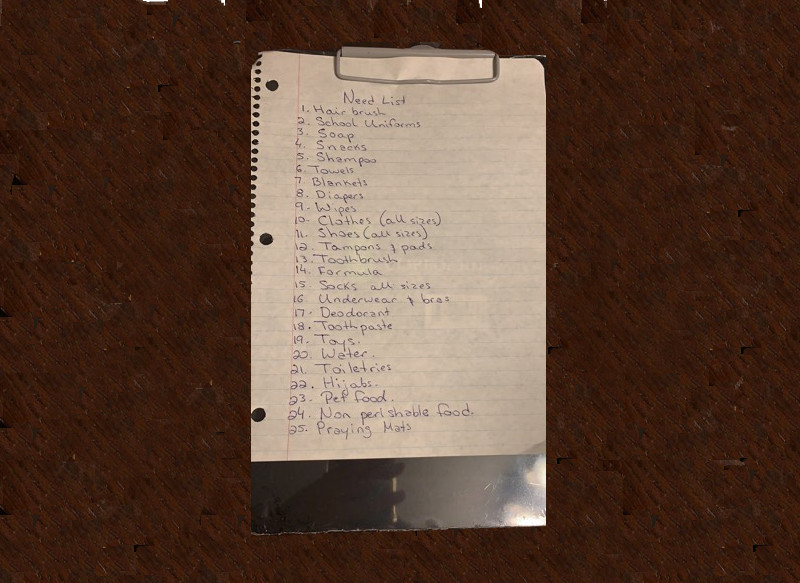 Need List
1. Hair brush
2. School Uniforms
3. Soap
4. Snacks
5. Shampoo
6. Towels
7. Blankets
8. Diapers
9. Wipes
10- Clothes (all sizes)
11. Shoes (all sizes)
12. Tampons & pads
13. Toothbrush
14. Formula
15. Socks all sizes
16. Underwear & bras
17. Deodorant
18. Toothpaste
19. Toys.
20. Water.
21. Toiletries
22. Hijabs.
23. Pet food.
24. Non perishable food.
25. Praying Mats